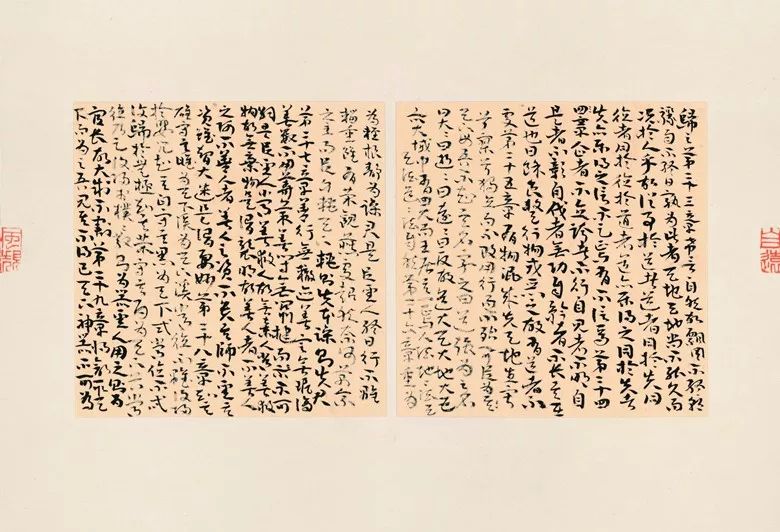 歸之第二十三章希言自然飄風不終朝
驟雨不終日孰為此者天地天地尚不能久而
況於人乎故從事於道者同於
於道者道亦樂得之同於失者
失亦樂得之信不足焉有不信焉第二十四
章企者不立跨者不行自見者不明自
是者不彰自伐者無功自矜者不長其在
道也曰餘食贅行物或惡之故有道者不
處第二十五章有物混成先天地生寂
兮寥兮獨立而不改周行而不殆可以為天
下母吾不知其名字之曰道強為之名
曰大大曰逝逝曰遠遠曰反故道大天大地大王
亦大域中有四大而王居其一焉人法地地法天
天法道道法自然第二十六章重為
輕根靜為躁君是以聖人終日行不離
輜重雖有榮觀燕處超然奈何萬乘
之主而以身輕天下輕則失本躁則失君
第二十七章善行無轍迹善言無瑕謫
善數不用籌策善閉無關楗而不可
是以聖人常善救人故無棄人常善救
物故無棄物是謂襲明故善人者不善人
之師不善人者善人之資不貴其師不愛其
資雖智大迷是謂要妙第二十八章知其
雄守其雌為天下谿為天下谿常德不離復歸
於嬰兒知其白守其黑為天下式為天下式常德不忒
復歸於無極知其榮守其辱為天下谷為天下谷常
德乃足復歸於樸樸散則為器聖人用之則為
官長故大制不割第二十九章將欲取天
下而為之吾見其不得已天下神器不可為